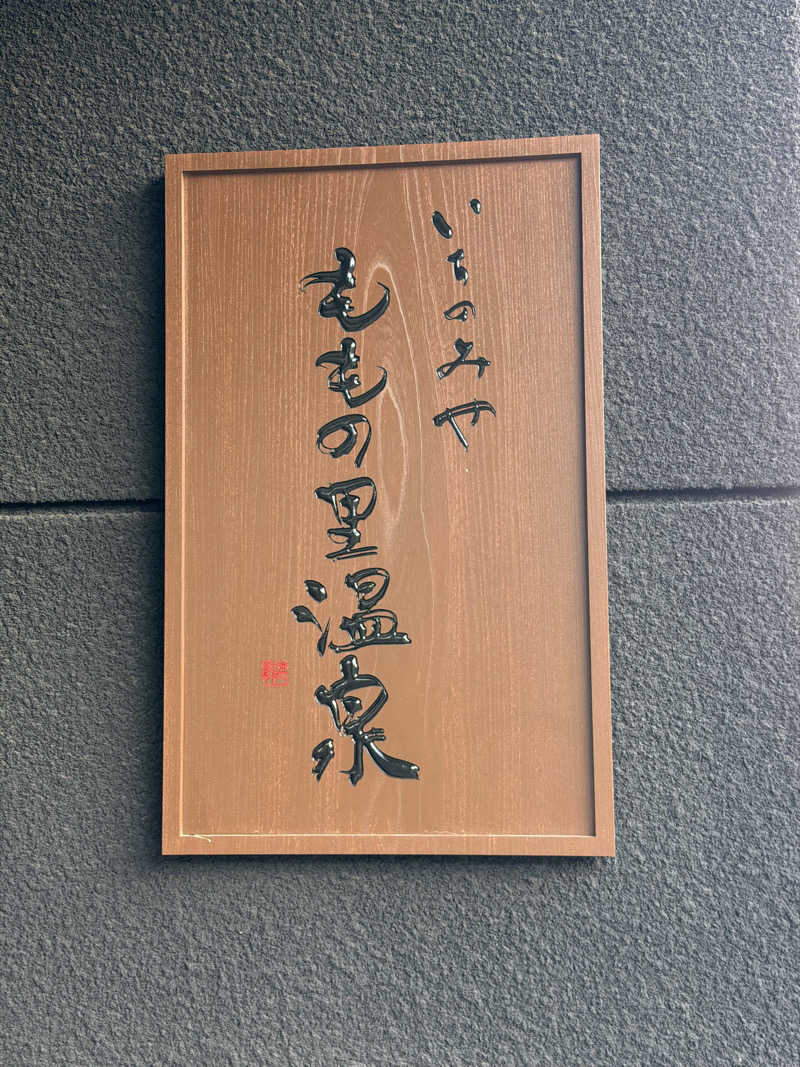 いちのみや
ももの里温泉